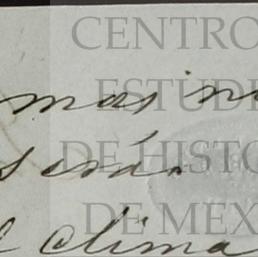 CENTRO
ESTUDI
DE HISTO
DE MEX
mas
será
clima